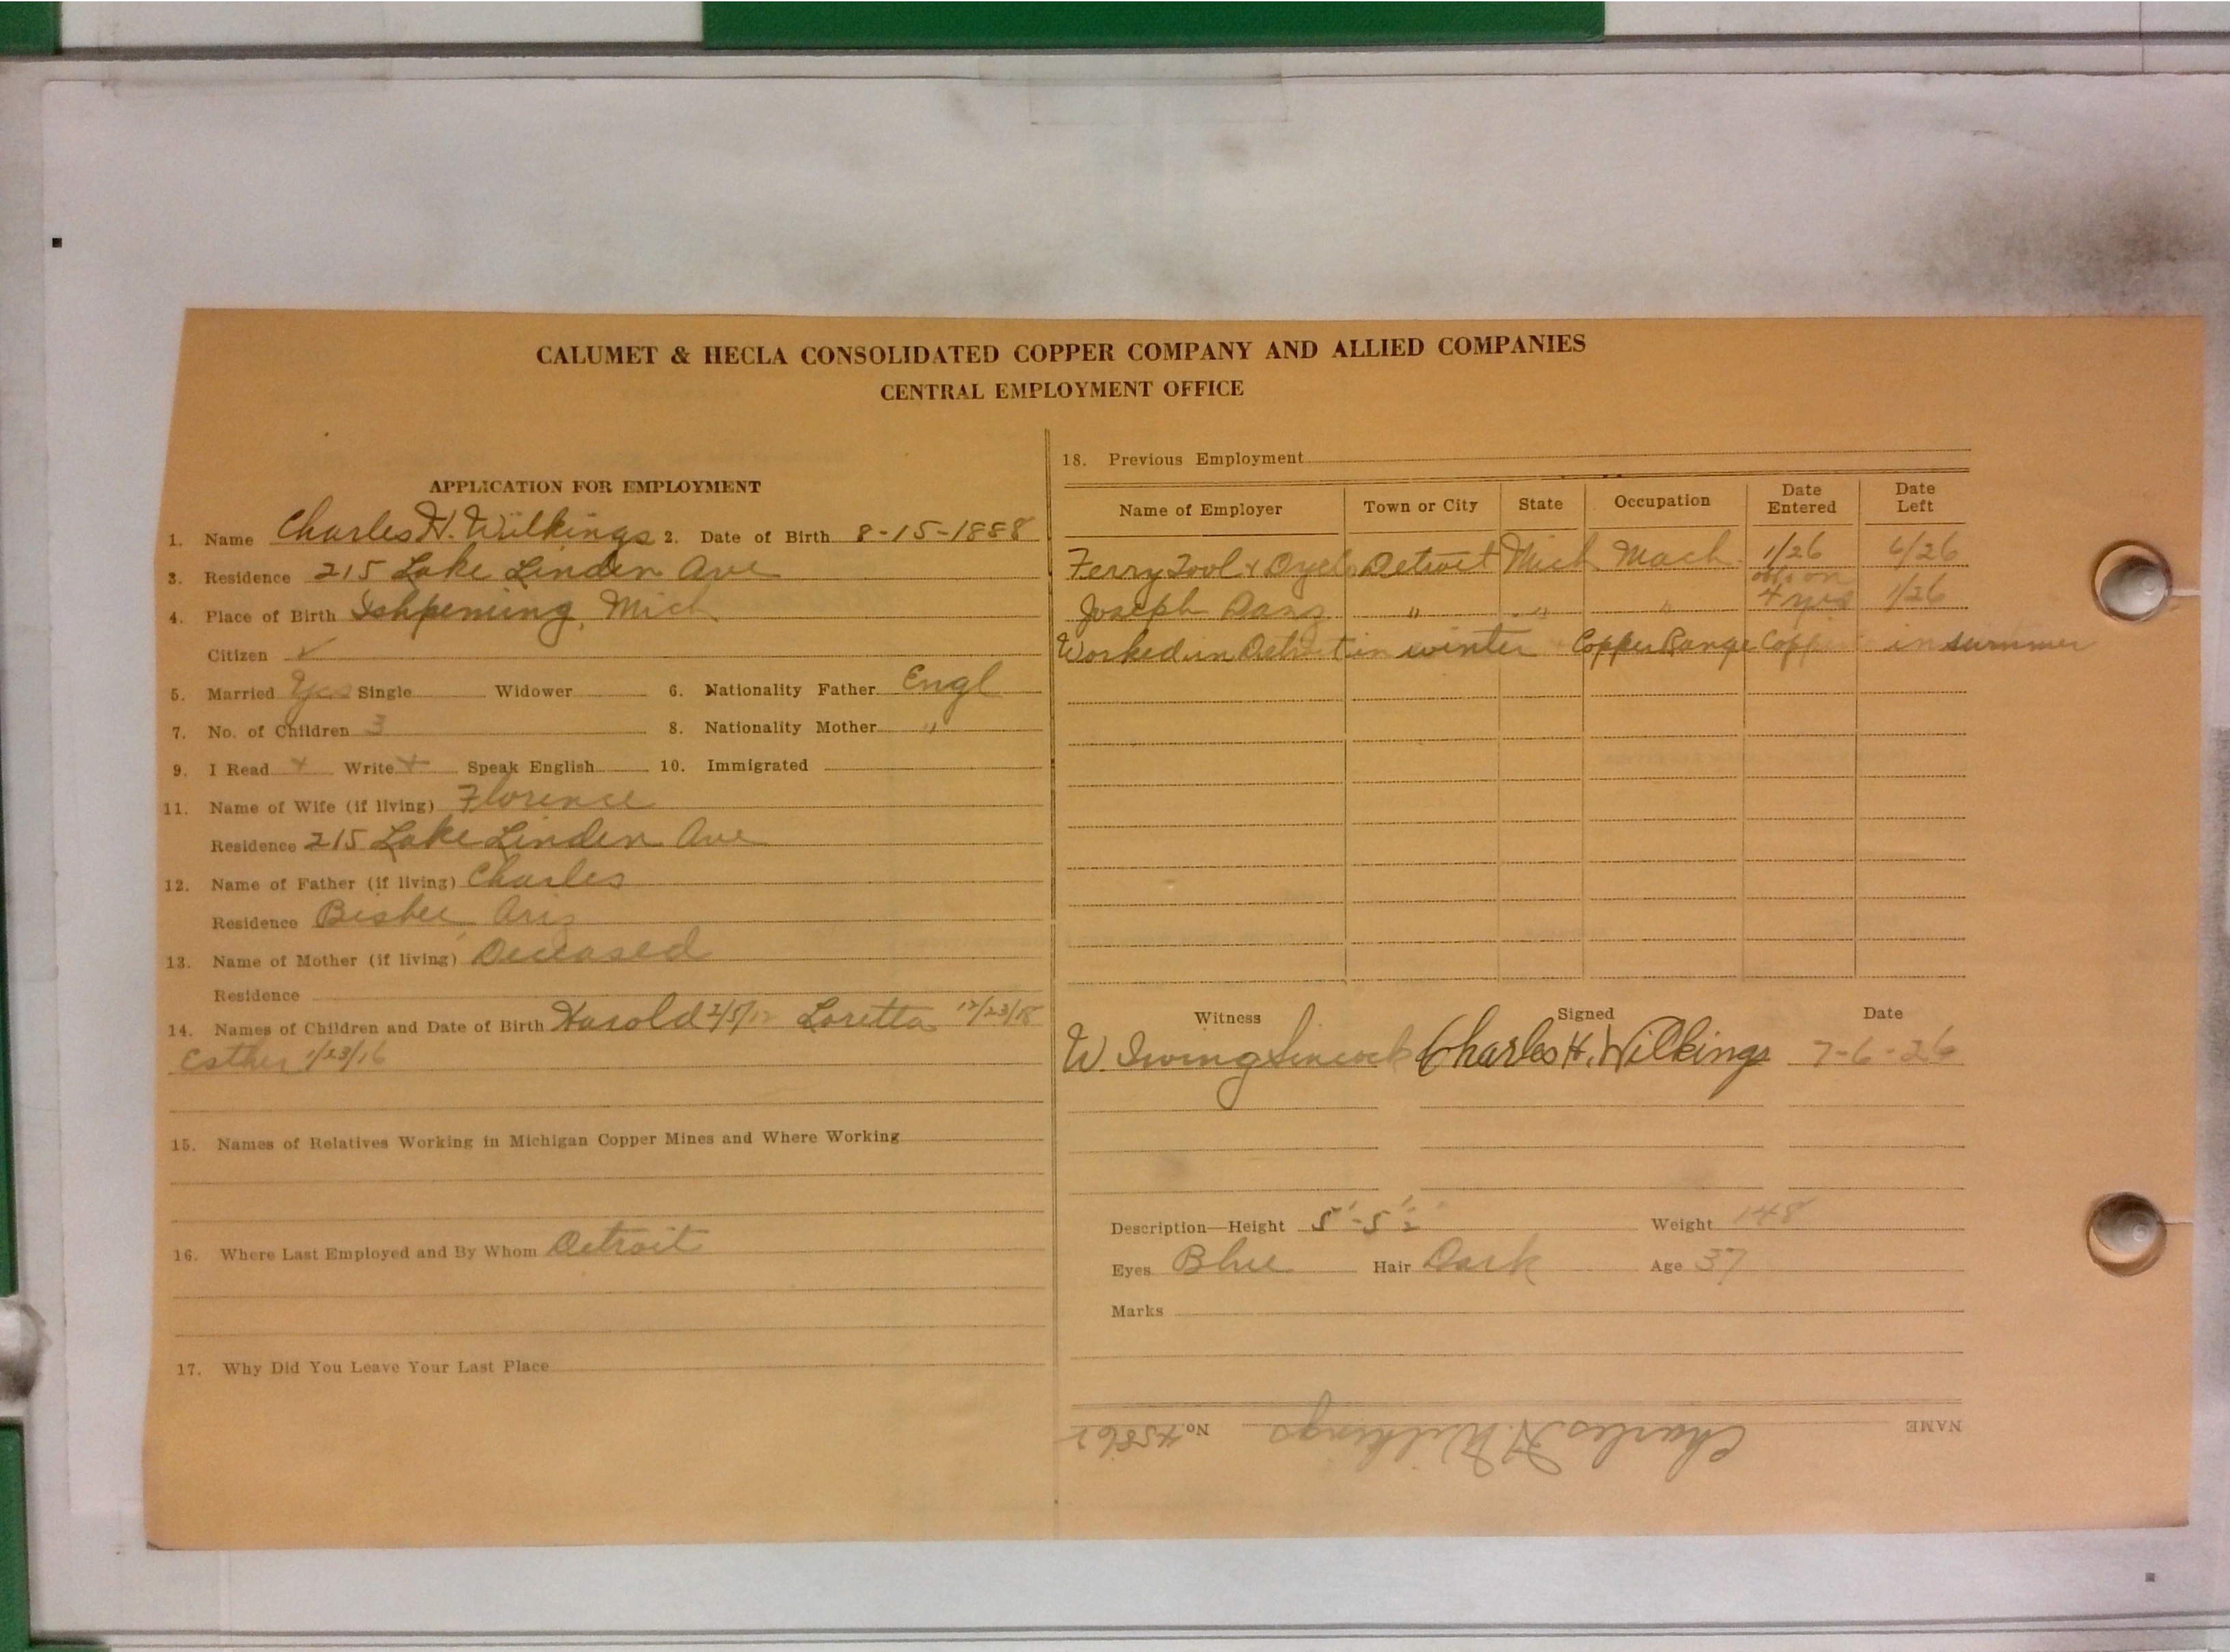 CALUMET & HECLA CONSOLIDATED COPPER COMPANY AND ALLIED COMPANIES
CENTRAL EMPLOYMENT OFFICE
APPLICATION FOR EMPLOYMENT
1. Name Charles H. Wilkings 2. Date of Birth 8-15-1888
3. Residence 215 Lake Linden Ave
4. Place of Birth Ishpeming, Mich
Citizen ✓
5. Married Yes Single Widower 6. Nationality Father Engl
7. No. of Children 3 8. Nationality Mother "
9. I Read + Write + Speak English 10. Immigrated
11. Name of Wife (if living) Florence
Residence 215 Lake Linden Ave
12. Name of Father (if living) Charles
Residence Bisbee, Ariz
13. Name of Mother (if living) Deceased
Residence
14. Names of Children and Date of Birth Harold 2/5/12 Loretta 12/23/18
Esther 1/23/16
15. Names of Relatives Working in Michigan Copper Mines and Where Working
16. Where Last Employed and By Whom Detroit
17. Why Did You Leave Your Last Place
18. Previous Employment
Name of Employer Town or City State Occupation Date Entered Date Left
Ferry Tool & Dye Detroit Mich Mach 1/26 6/26
Joseph " " " off & on 4 yrs 1/26
Worked in Detroit in winter Copper Range Copper in summer
Witness Signed Date
W. Irving Sincock Charles H. Wilkings 7-6-26
Description—Height 5'-5½" Weight 148
Eyes Blue Hair Dark Age 37
Marks
NAME Charles H. Wilkings No. 45862